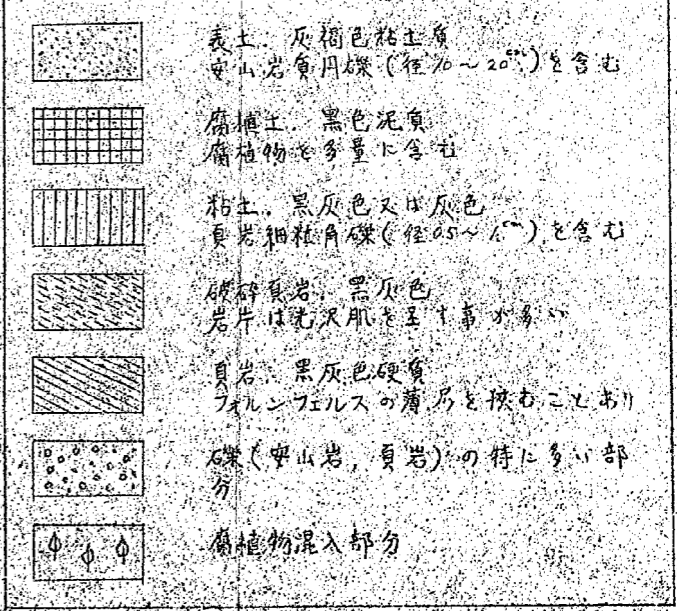 表土. 灰褐色粘土質
安山岩質円礫(径10~20cm)を含む
腐植土. 黒色泥質
腐植物を多量に含む
粘土. 黒灰色又は灰色
頁岩細粒角礫(径0.5~1.cm)を含む
破砕頁岩. 黒灰色
岩片は光沢肌を呈す事が多い
頁岩. 黒灰色硬質
フォルンフェルスの薄層を挟むことあり
礫(安山岩, 頁岩)の特に多い部
分
腐植物混入部分